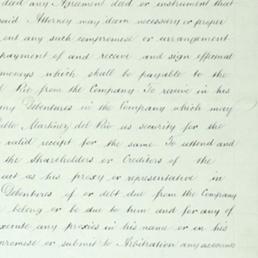 died any Agreement deed or instrument that
said Attorney may deem necessary or proper
out any such compromise or arrangement
payment of and receive and sign effectual
moneys which shall be payable to the
l Rio from the Company To receive in his
any Debentures in the Company which may
ablo Martinez del Rio as security for the
valid receipt for the same To attend and
the Shareholders or Creditors of the
act as his proxy or representative in
Debentures of or debt due from the Company
belong or be due to him and for any of
execute any proxies in his name or in his
promise or submit to Arbitration any accounts